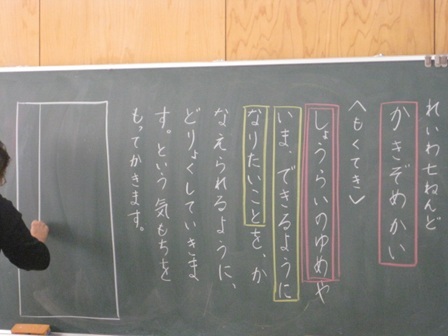 れいわ七ねんど
かきぞめかい
＜もくてき＞
しょうらいのゆめや
いま、できるように
なりたいことを、か
なえられるように、
どりょくしていきま
す。という気もちを
もってかきます。